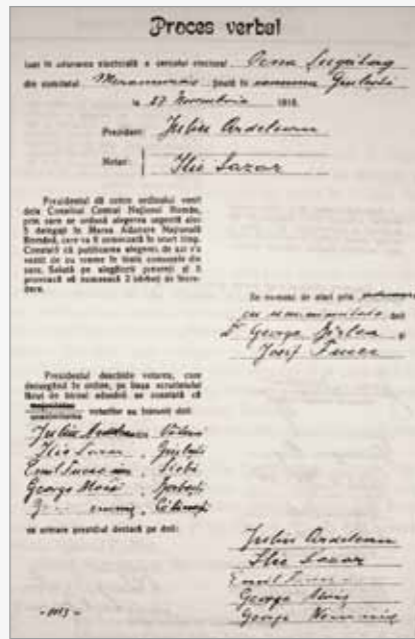 Proces verbal
luat în adunarea electorală a cercului electoral Ocna Șugatag
din comitatul Maramureș ținută în comuna Giulești
la 27 Novembrie 1918.
Prezident: Juliu Ardelean
Notar: Ilie Lazar
Prezidentul dă cetire ordinului venit
dela Consiliul Central Național Român,
prin care se ordonă alegerea urgentă alor
5 delegați în Marea Adunare Națională
Română, care va fi convocată în scurt timp.
Constată că publicarea alegerei de azi s'a
vestit de cu vreme în toate comunele din
cerc. Salută pe alegătorii prezenți și îi
provoacă să numească 2 bărbați de încre-
dere.
Se numesc de atari prin
cu unanimitate doi
Dr George Bîrlea
Josif
Prezidentul deschide votarea, care
decurgând în ordine, pe baza scrutinului
făcut de biroul adunării se constată că
unanimitatea voturilor au întrunit doi:
Juliu Ardelean,
Ilie Lazar, Giulești
Emil
George
va urmare prezidiul declară pe doi:
Juliu Ardelean
Ilie Lazar
Emil
George
George